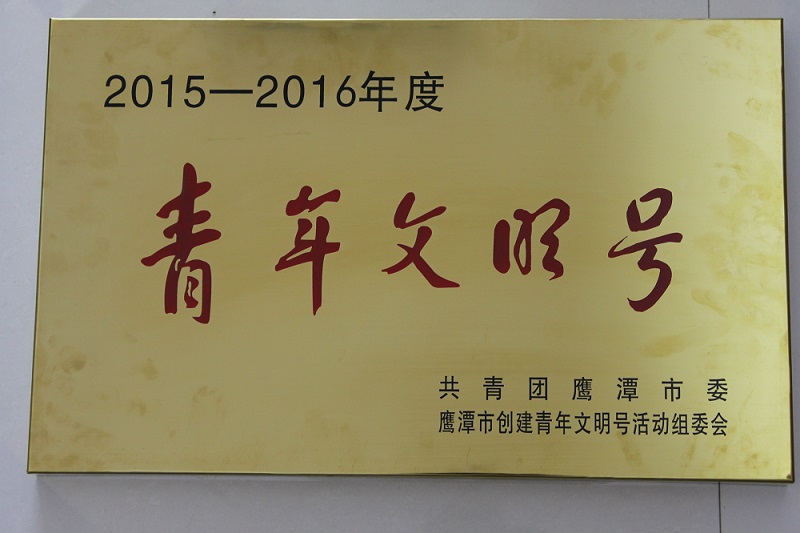 2015—2016年度
青年文明号
共青团鹰潭市委
鹰潭市创建青年文明号活动组委会